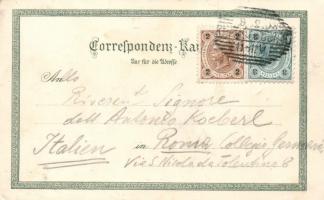 Correspondenz-Ka
Nur für die Adresse
Alla
Riverent Signore
dott Antonio Koeberl
Italien in Roma Collegio German
Via S. Nicola da Tolentino 8